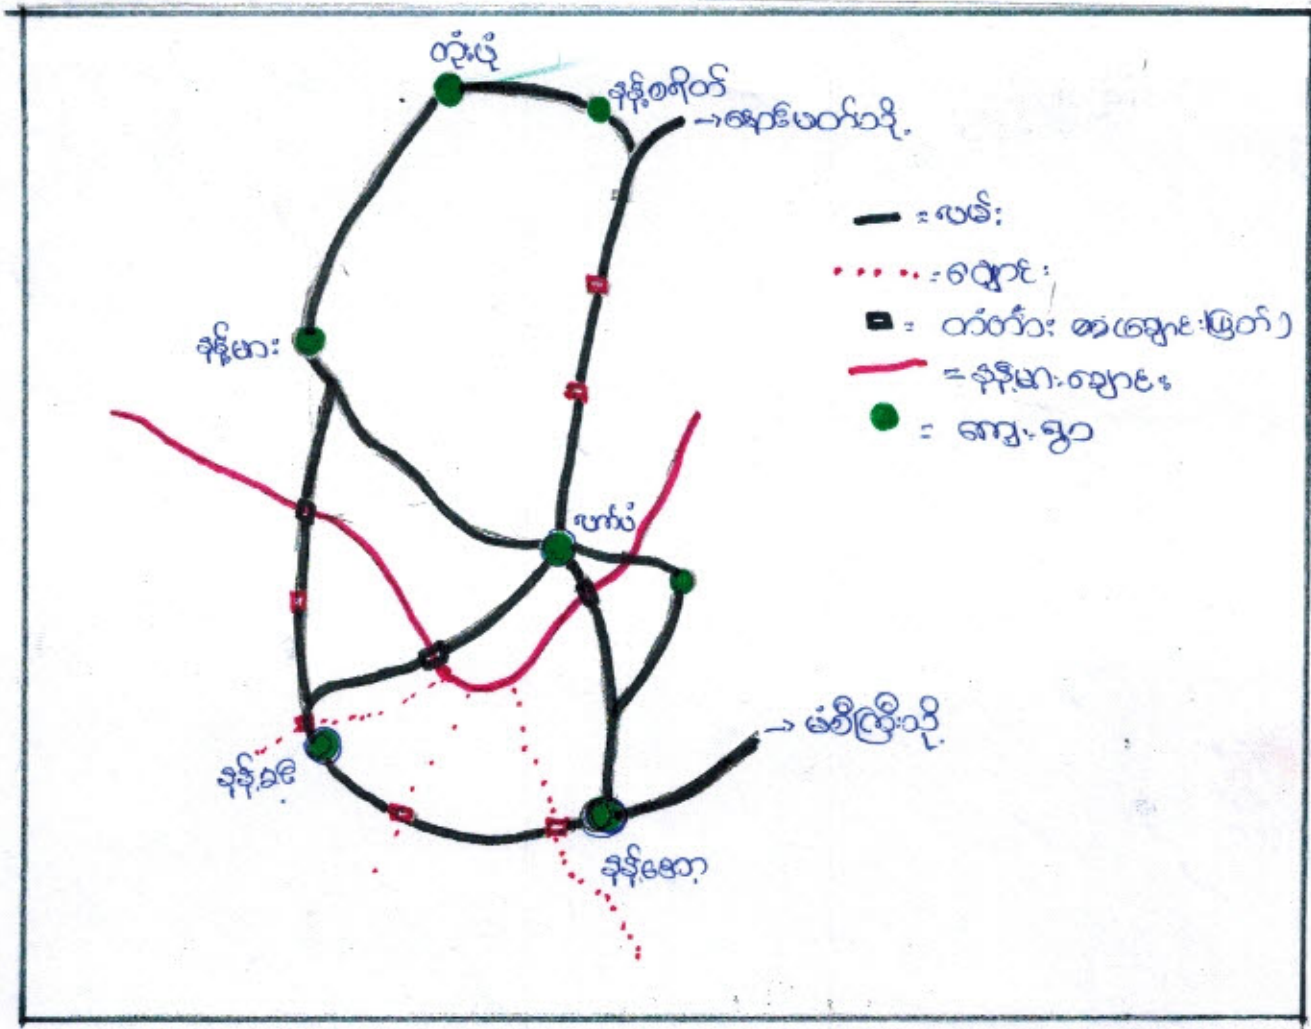 တုံးပုံ
နန့်စရိတ်
→နောင်မတ်သို့
— = လမ်း
..... = ချောင်း
= တံတား (ချောင်းဖြတ်)
= နန့်မားချောင်း
= ကျေးရွာ
နန့်မား
→ မံစီကြီးသို့
နန့်ခင
နန့်အော့